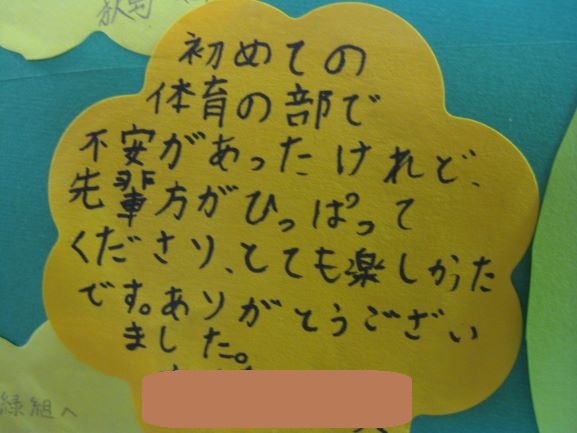 初めての
体育の部で
不安があったけれど、
先輩方がひっぱって
くださり、とても楽しかった
です。ありがとうござい
ました。
緑組へ